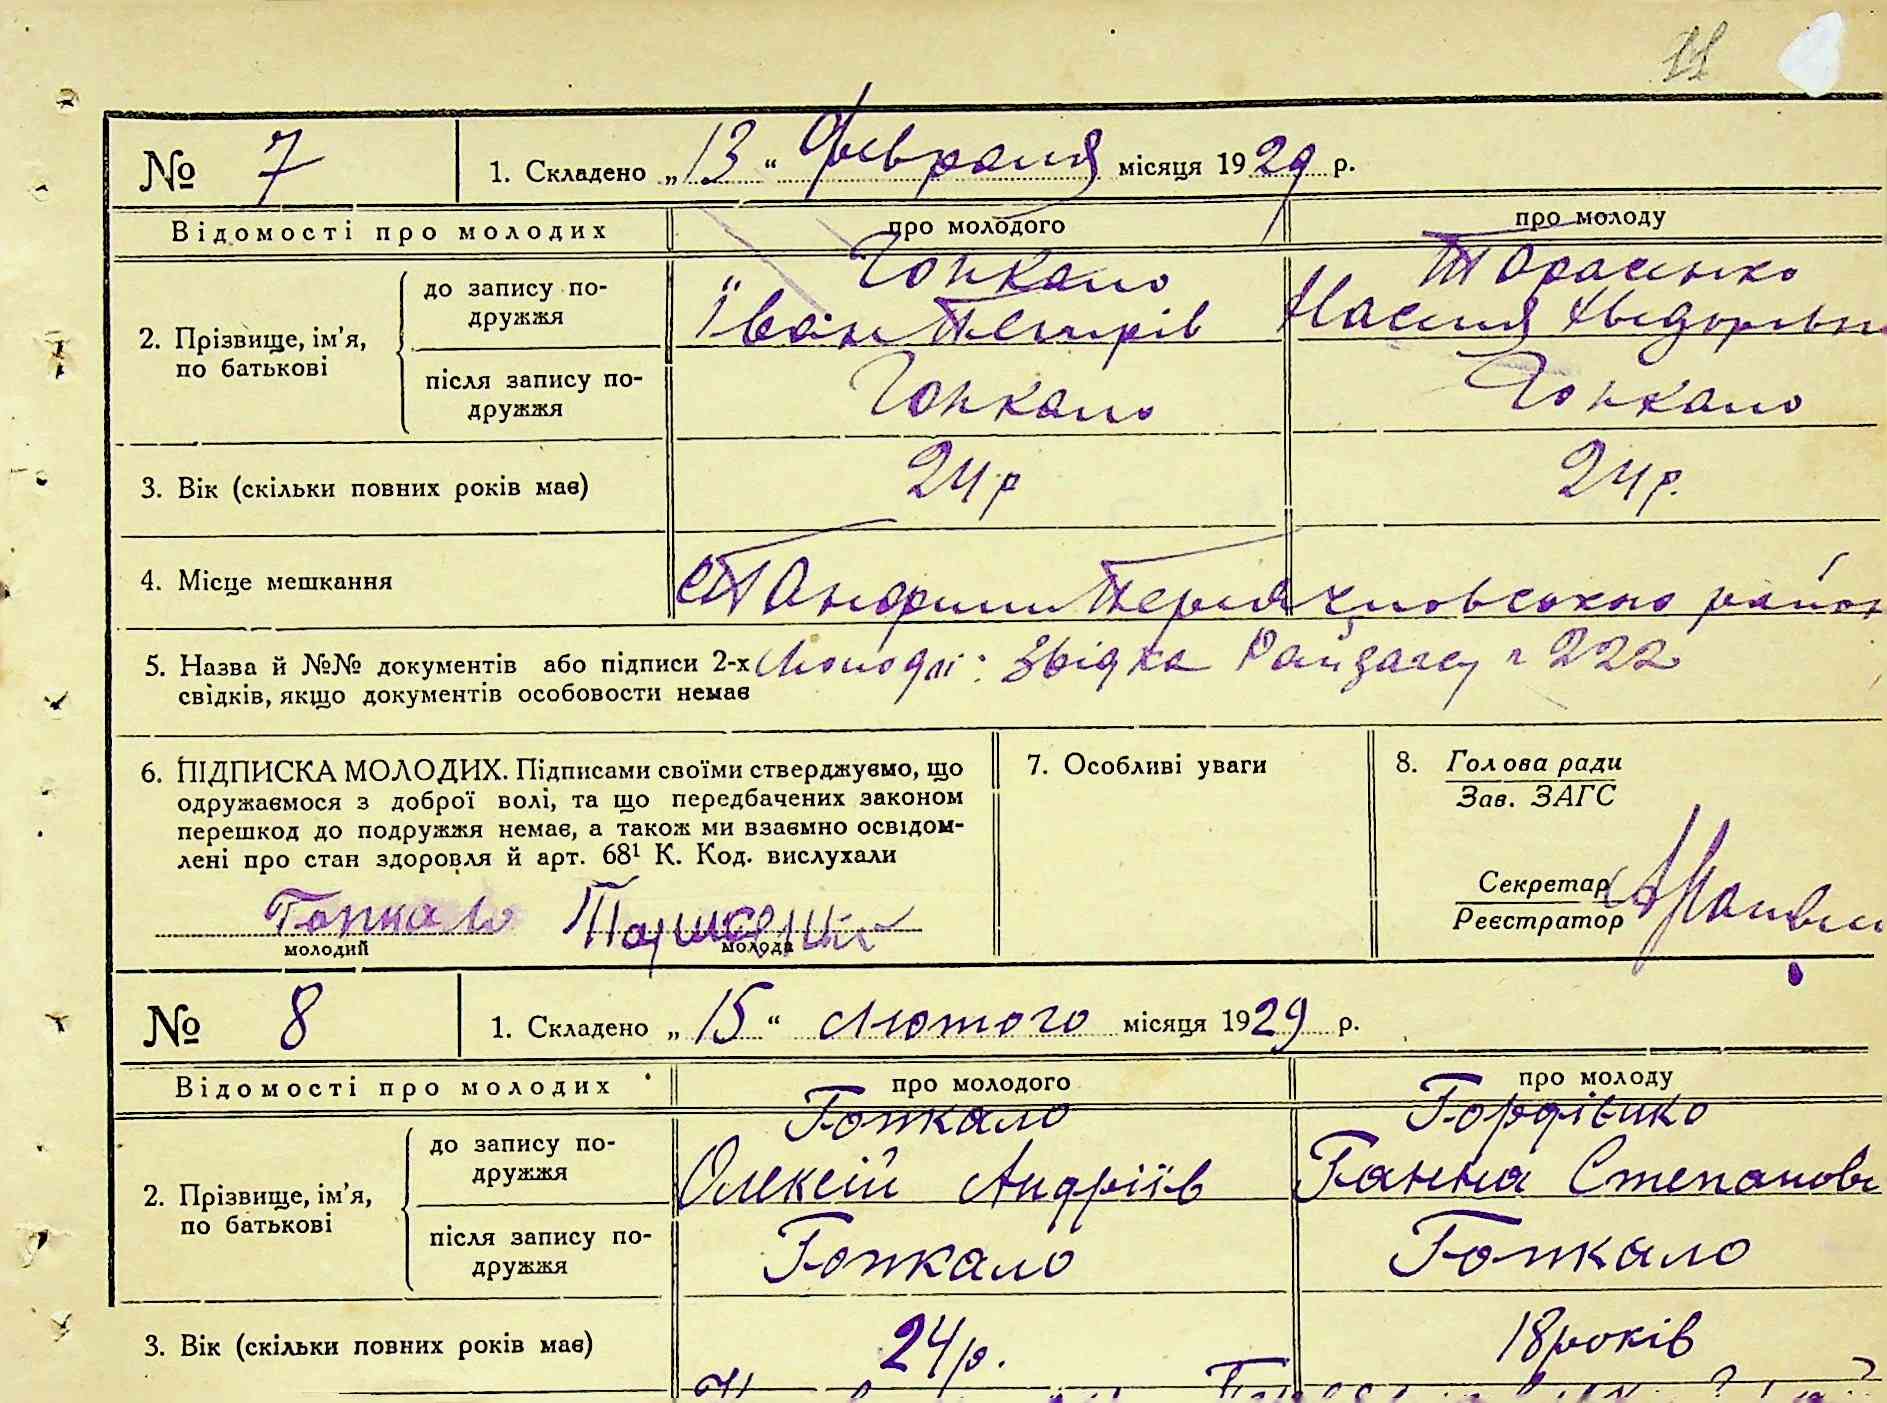 11
№ 7 1. Складено „13“ Февраля місяця 1929 р.
Відомості про молодих про молодого про молоду
2. Прізвище, ім’я, по батькові
до запису подружжя
Гопкало Тарасенко
Іван Петрів Настя Хведоровн
після запису подружжя
Гопкало Гопкало
3. Вік (скільки повних років має) 24 р 24 р.
4. Місце мешкання район
5. Назва й №№ документів або підписи 2-х свідків, якщо документів особовости немає
Молоді: Звідка Райзагсу 222
6. ПІДПИСКА МОЛОДИХ. Підписами своїми стверджуємо, що
одружаємося з доброї волі, та що передбачених законом
перешкод до подружжя немає, а також ми взаємно освідом-
лені про стан здоровля й арт. 68¹ К. Код. вислухали
Гопкало
молодий молода
7. Особливі уваги
8. Голова ради
Зав. ЗАГС
Секретар
Реєстратор
№ 8 1. Складено „15“ лютого місяця 1929 р.
Відомості про молодих про молодого про молоду
2. Прізвище, ім’я, по батькові
до запису подружжя
Гопкало Гордієнко
Олексій Андріїв Ганна Степанов
після запису подружжя
Гопкало Гопкало
3. Вік (скільки повних років має) 24 р. 18 років